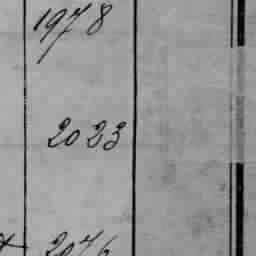 1978
2023
2076